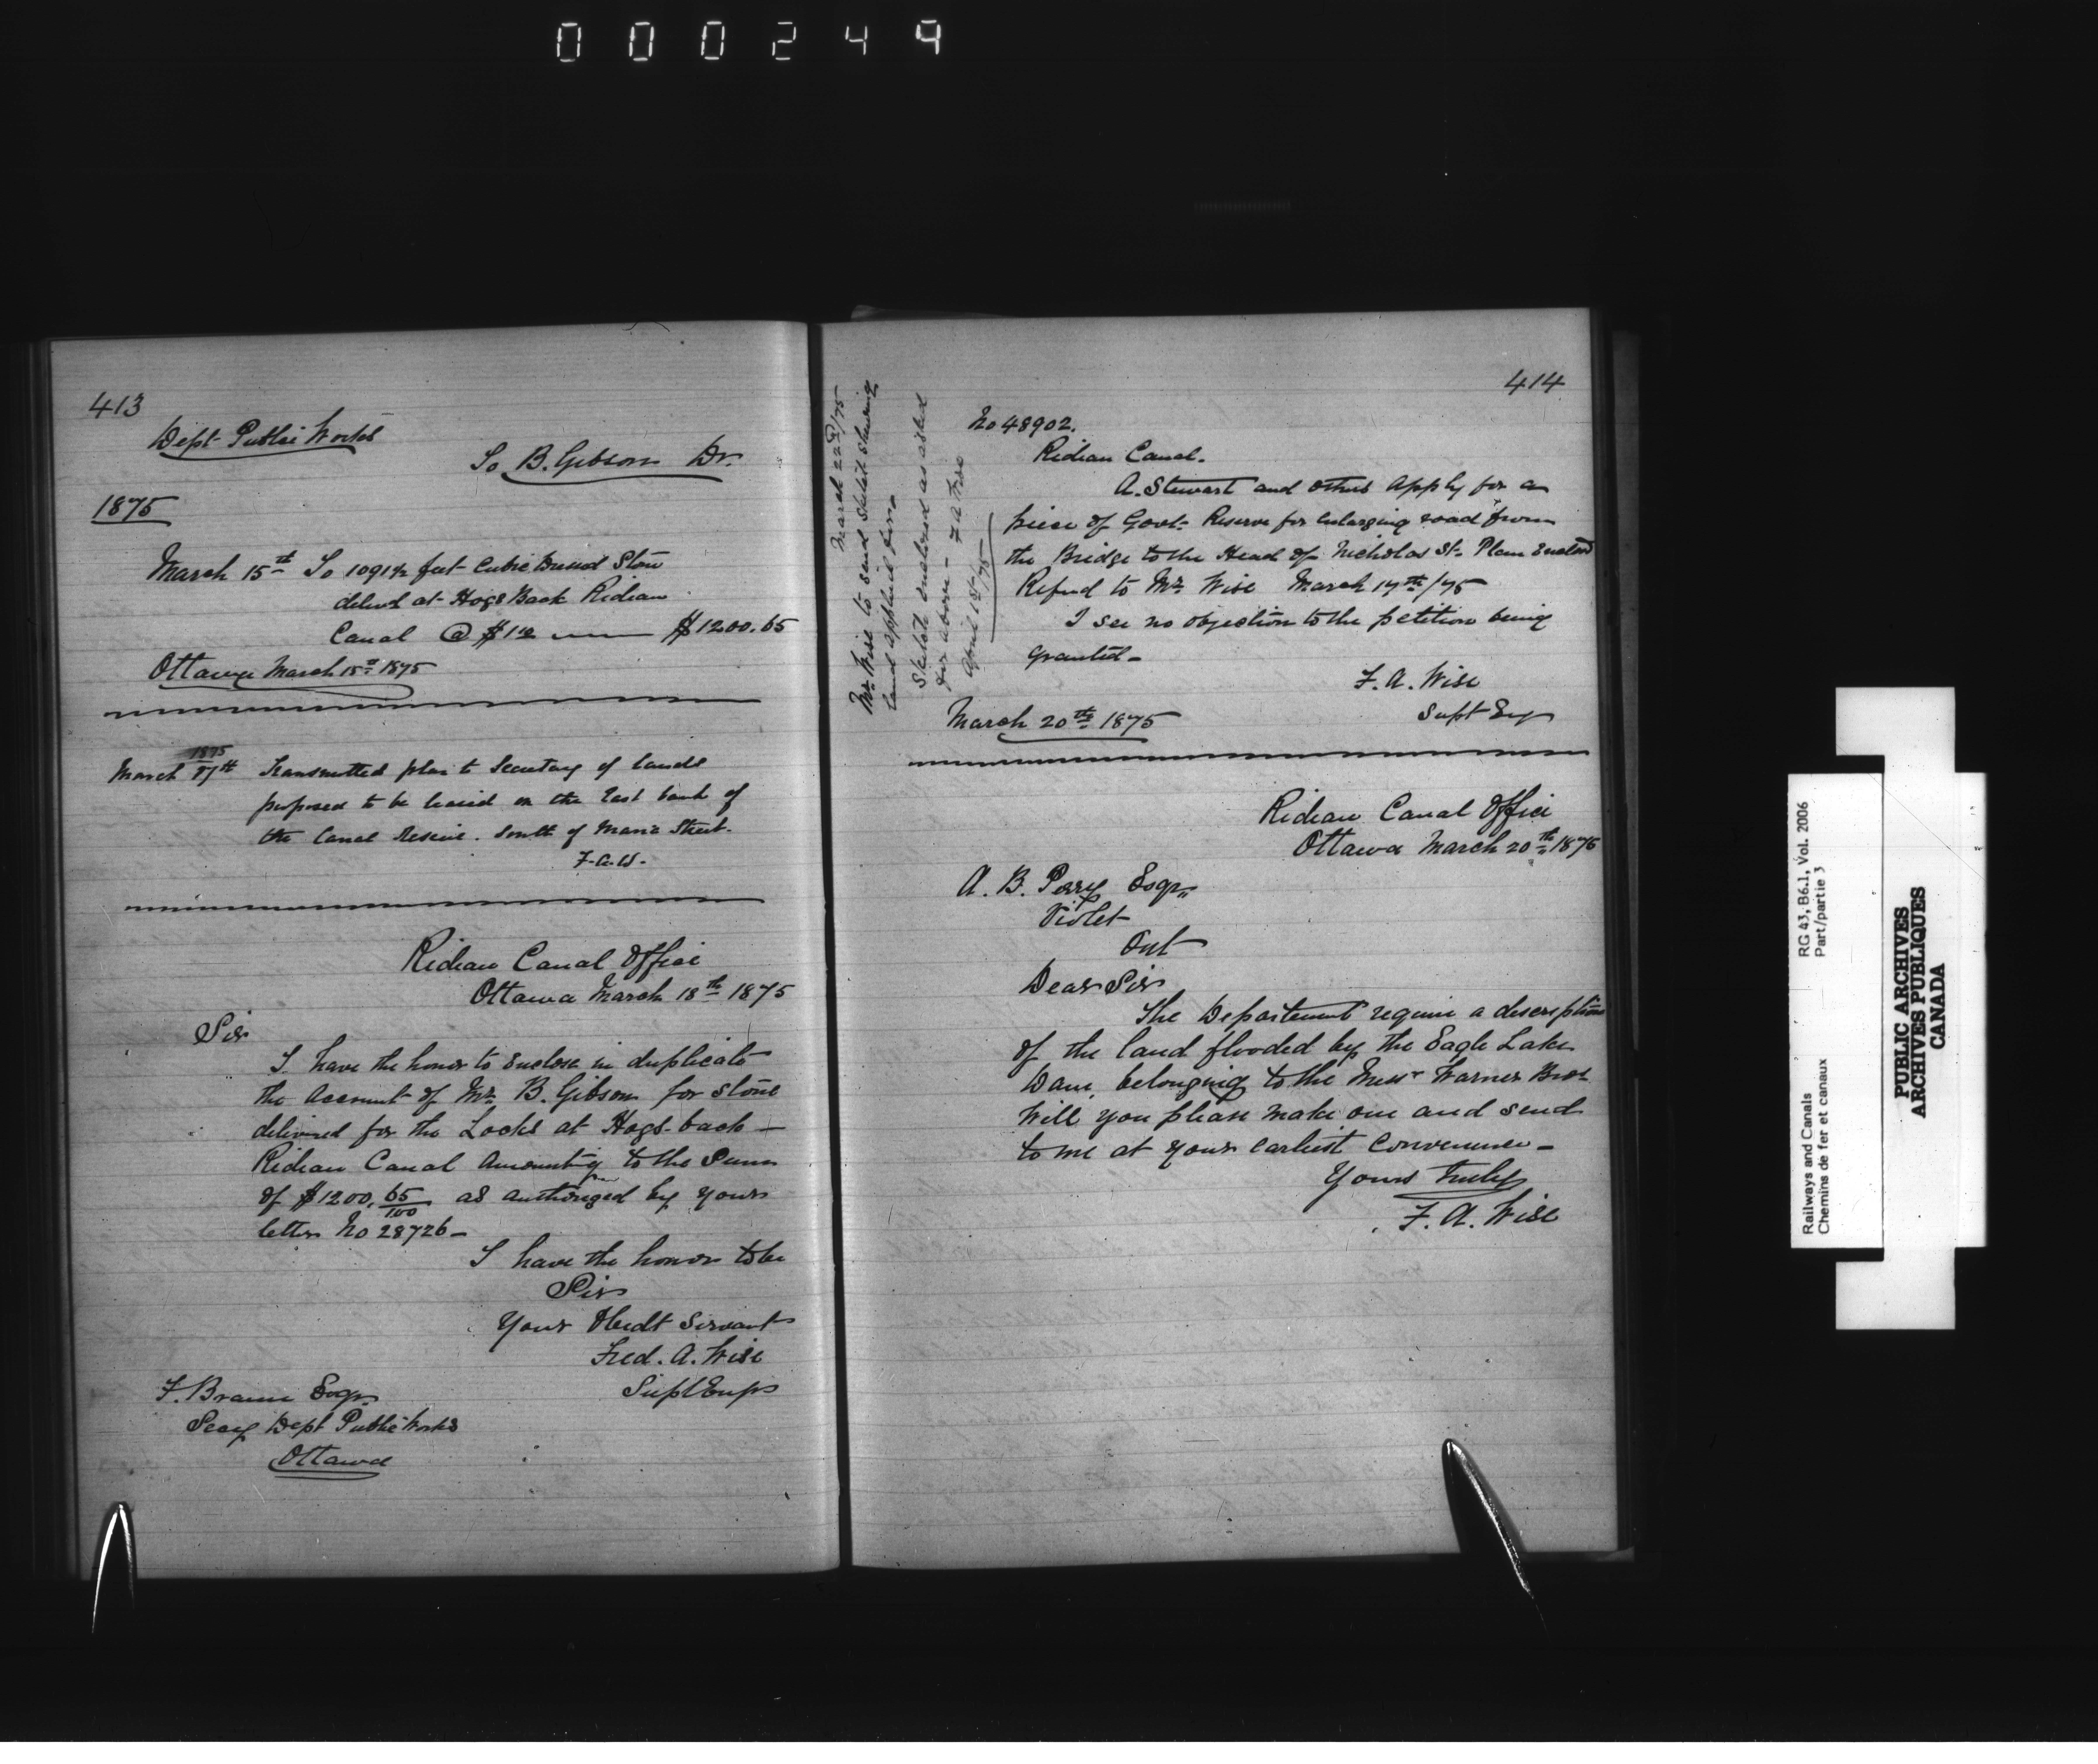 000249
413
Dept Public Works
To B. Gibson Dr.
1875
March 15th To 1091½ feet Cubic Dressed Stone
delivd at Hogs Back Rideau
Canal @ $1.10 $1200.65
Ottawa March 15th 1875
1875
March 17th Transmitted plan to Secretary of lands
proposed to be leased on the East bank of
the Canal Reserve. South of Maria Street.
F.A.W.
Rideau Canal Office
Ottawa March 18th 1875
Sir
I have the honor to enclose in duplicate
the account of Mr. B. Gibson for stone
delivered for the Locks at Hogs-back —
Rideau Canal Amounting to the Sum
of $1200.65/100 as authorized by your
letter No 28726 —
I have the honor to be
Sir
Your Obedt Servant
Fred. A. Wise
Supt Engr
F. Braun Esqr
Secy Dept Public Works
Ottawa
414
March 22nd/75
Mr. Wise to send sketch shewing
land applied for —
Sketch enclosed as asked
for above — F A Wise
April 1st/75
No 48902.
Rideau Canal.
A. Stewart and others apply for a
piece of Govt. Reserve for enlarging road from
the Bridge to the Head of Nicholas St. Plan Enclosd
Referd to Mr. Wise March 17th/75
I see no objection to the petition being
granted —
F. A. Wise
Supt Eng
March 20th 1875
Rideau Canal Office
Ottawa March 20th 1875
A. B. Perry Esqr.
Violet
Ont
Dear Sir
The Department require a description
of the land flooded by the Eagle Lake
Dam, belonging to the Messr Warner Bros
Will you please make one and send
to me at your earliest convenience —
Yours truly
F. A. Wise
Railways and Canals RG 43, B6.1, Vol. 2006
Chemins de fer et canaux Part/partie 3
PUBLIC ARCHIVES
ARCHIVES PUBLIQUES
CANADA